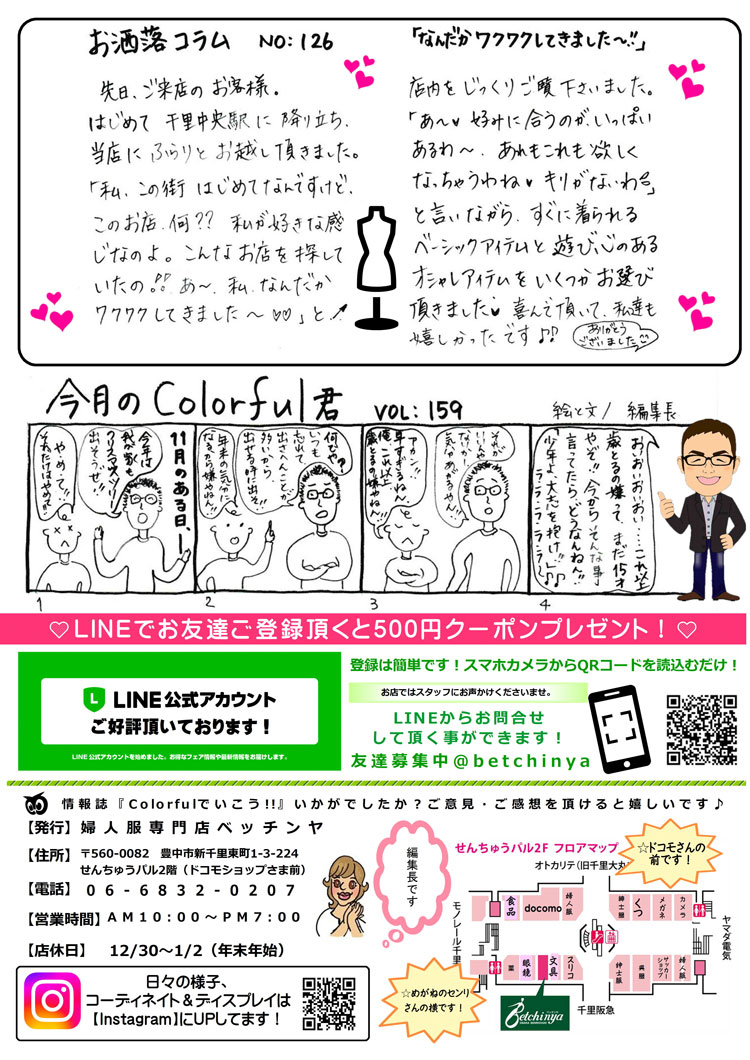 お洒落コラム NO:126
「なんだかワクワクしてきました〜!!」
先日、ご来店のお客様。
はじめて 千里中央駅に降り立ち、
当店に ふらりとお越し頂きました。
「私、この街 はじめてなんですけど、
このお店、何?? 私が好きな感
じなのよ。こんなお店を探して
いたの!! あ〜、私、なんだか
ワクワクしてきました〜♡♡」と!
店内をじっくりご覧下さいました。
「あ〜♥ 好みに合うのがいっぱい
あるわ〜、あれもこれも欲しく
なっちゃうわね♥ キリがないわ」
と言いながら、すぐに着られる
ベーシックアイテムと遊び心のある
オシャレアイテムをいくつかお選び
頂きました 喜んで頂いて、私達も
嬉しかったです♪♪
ありがとう
ございました
今月のColorful君 VOL:159 絵と文/ 編集長
11月のある日、
今年は
我が家も
クリスマスツリー
出そうぜ!!
やめて!!
それだけはやめて
1
何でや?
いつも
忘れて
出さんことが
多いから、
出せる時に出そ!!
年末の気分に
なるから嫌やねん!!
2
それが
いいんや
気分あがるやん!!
アカン!!
早すぎるねん
俺、これ以上
歳とるの嫌やねん!!
3
おいおいおいおい…これ以上
歳とるの嫌って、まだ15才
やぞ!! 今からそんな事
言ってたらどうなんねん!!
「少年よ、大志を抱け!!」♪♪
ラ・ラ・ラ・ラ・ラ!
4
♡LINEでお友達ご登録頂くと500円クーポンプレゼント!♡
L LINE公式アカウント
ご好評頂いております!
LINE公式アカウントを始めました。お得なフェア情報や最新情報をお届けします。
登録は簡単です!スマホカメラからQRコードを読込むだけ!
お店ではスタッフにお声かけくださいませ。
LINEからお問合せ
して頂く事ができます!
友達募集中@betchinya
情報誌『Colorfulでいこう!!』いかがでしたか?ご意見・ご感想を頂けると嬉しいです♪
【発行】婦人服専門店ベッチンヤ
【住所】〒560-0082 豊中市新千里東町1-3-224
せんちゅうパル2階(ドコモショップさま前)
【電話】06-6832-0207
【営業時間】AM10:00〜PM7:00
【店休日】12/30〜1/2(年末年始)
日々の様子、
コーディネイト&ディスプレイは
【Instagram】にUPしてます!
編集長です
せんちゅうパル2F フロアマップ
☆ドコモさんの
前です!
オトカリテ(旧千里大丸
モノレール千里
食品
docomo
婦人服
紳士服
くつ
メガネ
カメラ
ヤマダ電気
薬
眼鏡
文具
スリコ
紳士服
呉服
サッカーショップ
婦人服
☆めがねのセンリ
さんの横です!
Betchinya
千里阪急